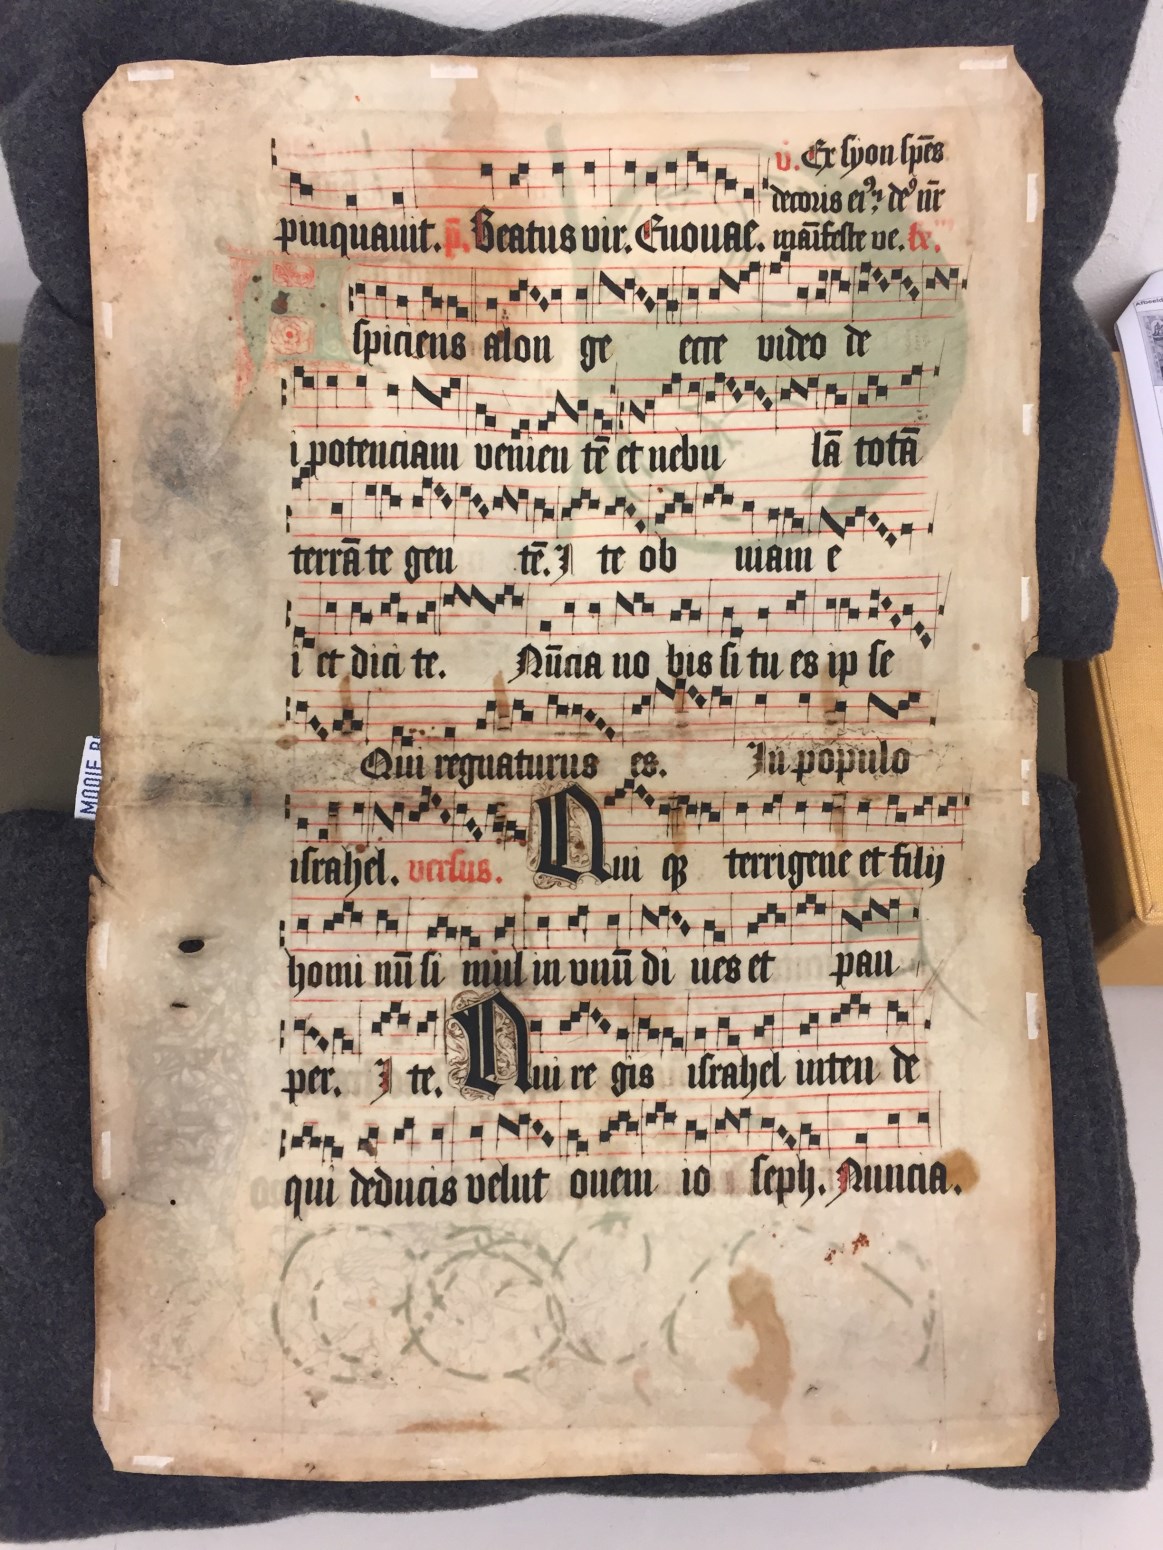 v̇. Ex syon spēs
decoris eiꝰ: deꝰ nr̄
pinquauit. p̄. Beatus vir. Euouae. manifeste ve. tē.
Aspiciens alon ge ecce video de
i potenciam venien tē et nebu lā totā
terrā te gen tē. I te ob uiam e
i et dici te. Nūcia uo bis si tu es ip se
Qui regnaturus es. In populo
israhel. versus. Qui qꝫ terrigene et filij
homi nū si mul in vnū di ues et pau
per. I te. Qui re gis israhel inten de
qui deducis velut ouem io seph. Nuncia.
MOOIE B
Afbeeld